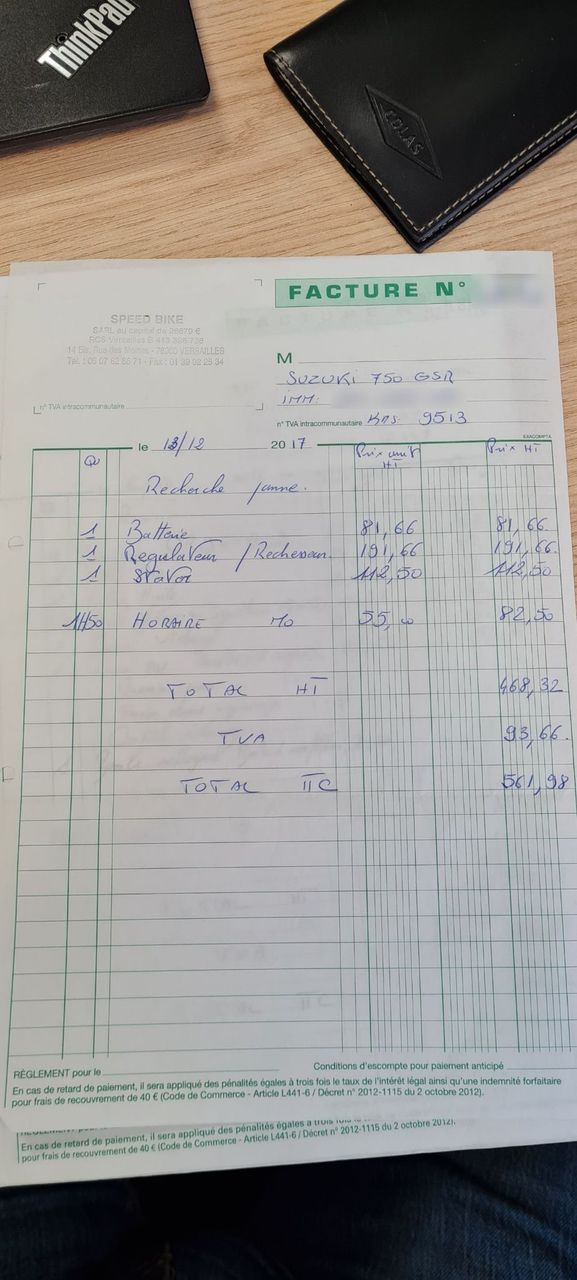 ThinkPad
COLAS
FACTURE N°
SPEED BIKE
SARL au capital de 26679 €
14 Bis, Rue des Moines - 78000 VERSAILLES
M
SUZUKI 750 GSR
IMM:
n° TVA intracommunautaire
n° TVA intracommunautaire KMS 9513
EXACOMPTA
le 13/12 2017
Qu Prix unit HT Prix HT
Recherche panne.
1 Batterie 81,66 81,66
1 Regulateur / Redresseur 191,66 191,66
1 Stator 112,50 112,50
1H50 HORAIRE MO 55,00 82,50
TOTAL HT 468,32
TVA 93,66
TOTAL TTC 561,98
RÈGLEMENT pour le Conditions d'escompte pour paiement anticipé
En cas de retard de paiement, il sera appliqué des pénalités égales à trois fois le taux de l'intérêt légal ainsi qu'une indemnité forfaitaire
pour frais de recouvrement de 40 € (Code de Commerce - Article L441-6 / Décret n° 2012-1115 du 2 octobre 2012).
En cas de retard de paiement, il sera appliqué des pénalités égales à trois fois
pour frais de recouvrement de 40 € (Code de Commerce - Article L441-6 / Décret n° 2012-1115 du 2 octobre 2012).